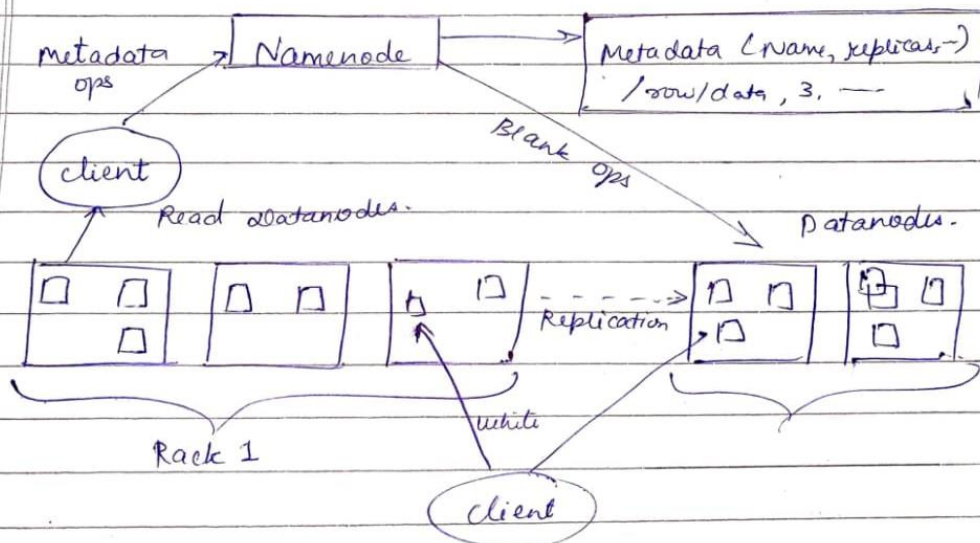 metadata
ops
Namenode
Metadata (Name, replicas, -)
/row/data, 3, —
Blank
ops
client
Read Datanodes.
Datanodes.
Replication
white
Rack 1
client